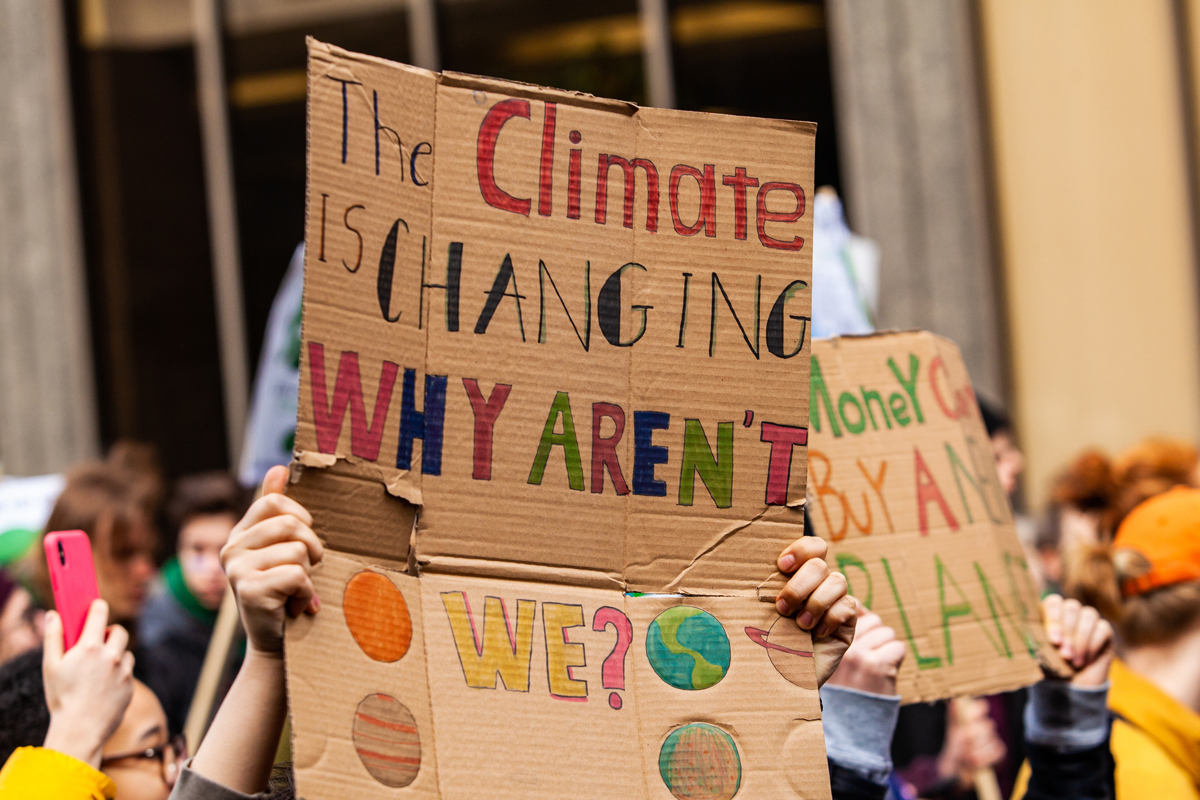 The Climate
IS CHANGING
WHY AREN'T
WE?
MoneY
BUY A